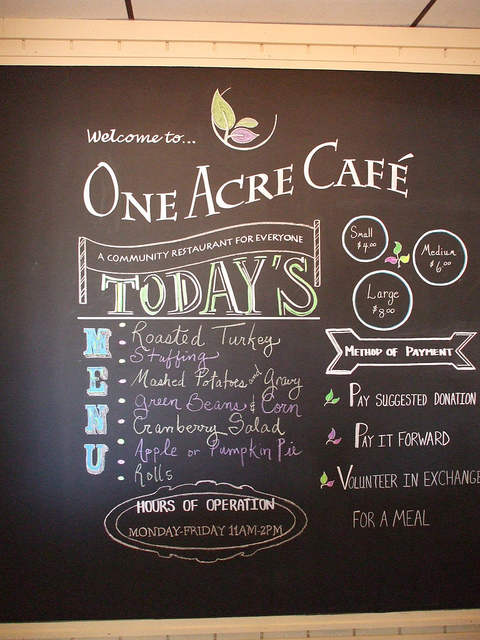 Welcome to...
ONE ACRE CAFÉ
A COMMUNITY RESTAURANT FOR EVERYONE
TODAY'S
MENU
• Roasted Turkey
• Stuffing
• Mashed Potatoes and Gravy
• Green Beans & Corn
• Cranberry Salad
• Apple or Pumpkin Pie
• Rolls
HOURS OF OPERATION
MONDAY-FRIDAY 11AM-2PM
Small
$4.00
Medium
$6.00
Large
$8.00
METHOD OF PAYMENT
PAY SUGGESTED DONATION
PAY IT FORWARD
VOLUNTEER IN EXCHANGE
FOR A MEAL